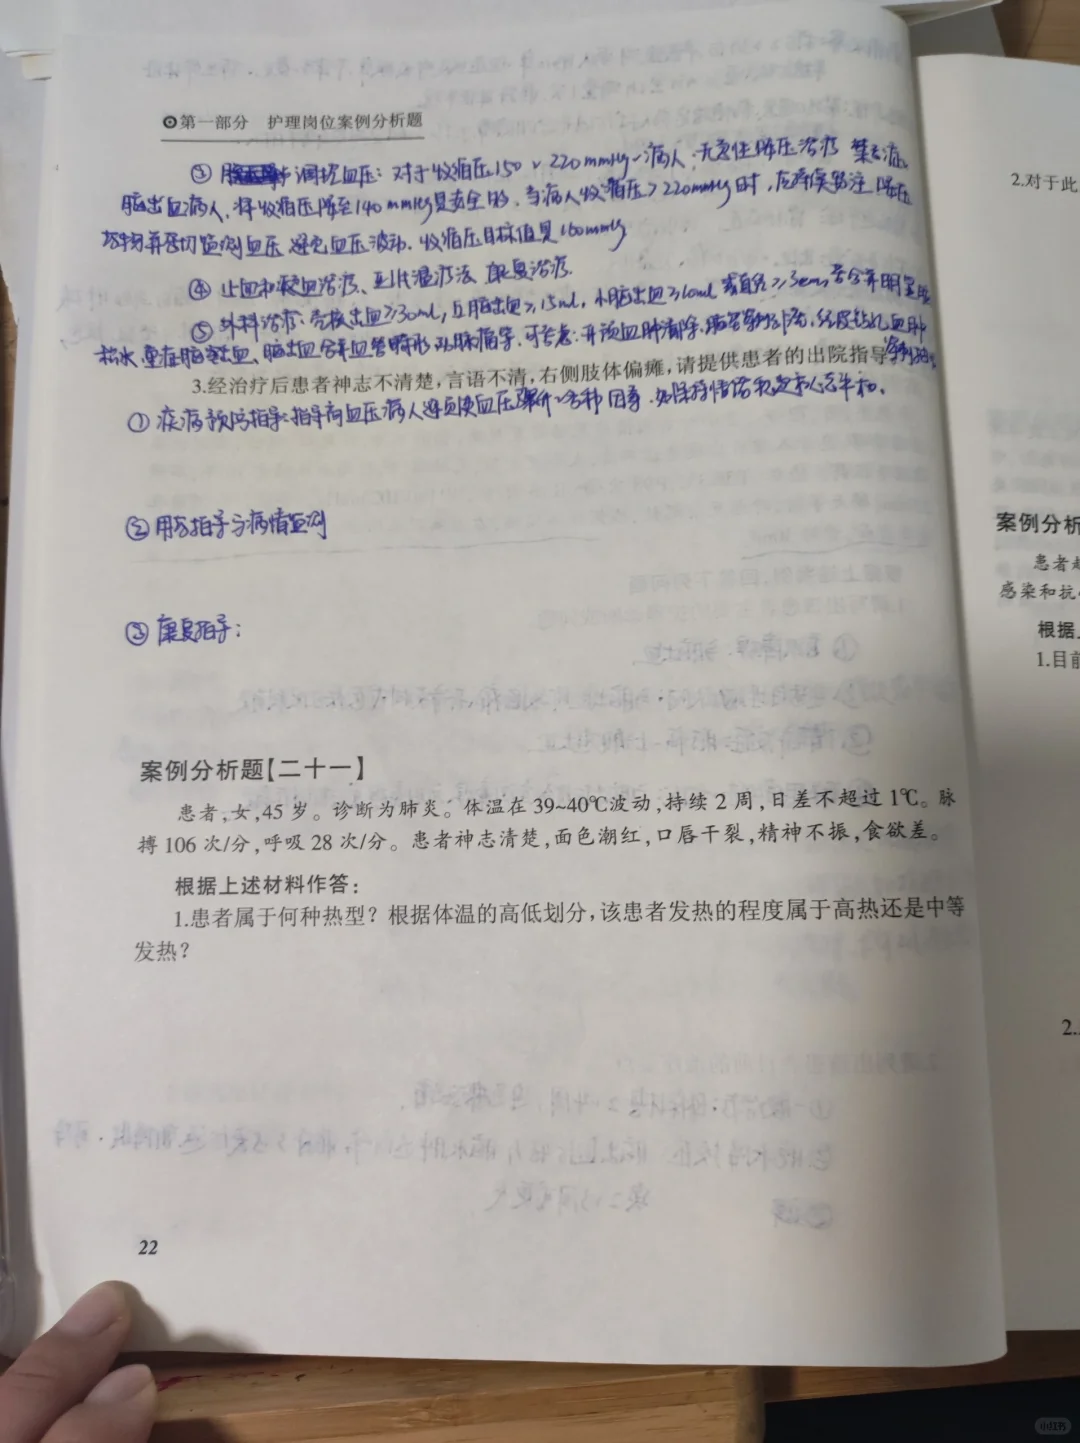 第一部分 护理岗位案例分析题
③ 调控血压：对于收缩压150~220mmHg病人，无急性降压治疗禁忌证，
脑出血病人，将收缩压降至140mmHg是安全的，当病人收缩压>220mmHg时，应持续静注降压
药物并密切监测血压，避免血压波动，收缩压目标值是160mmHg
④ 止血和凝血治疗、亚低温疗法、康复治疗.
⑤ 外科治疗：壳核出血≥30ml，丘脑出血≥15ml，小脑出血≥10ml或直径≥3cm，或合并明显脑
积水，重症脑室出血、脑出血合并血管畸形、动脉瘤等，可考虑：开颅血肿清除、钻孔血肿
3.经治疗后患者神志不清楚，言语不清，右侧肢体偏瘫，请提供患者的出院指导
① 疾病预防指导：指导高血压病人避免使血压骤升的各种因素，如保持情绪稳定和心态平和。
② 用药指导与病情监测
③ 康复指导：
案例分析题【二十一】
患者，女，45 岁。诊断为肺炎。体温在 39~40℃波动，持续 2 周，日差不超过 1℃。脉
搏 106 次/分，呼吸 28 次/分。患者神志清楚，面色潮红，口唇干裂，精神不振，食欲差。
根据上述材料作答：
1.患者属于何种热型？根据体温的高低划分，该患者发热的程度属于高热还是中等
发热？
22
2.对于此
案例分析
患者
感染和抗
根据
1.目前
2.
小红书